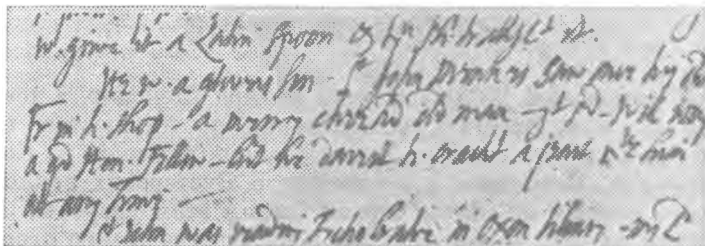 give a Latin spoon & sh. it.
He w. a glovers son – Sr John Mennis saw once his old
Fr in h. shop – a merry cheekd old man – yt sd – Will was
a gd Hon. Fellow – but he darest h. crackt a jeast wth him
at any time –
Sr John was in Oxon library –